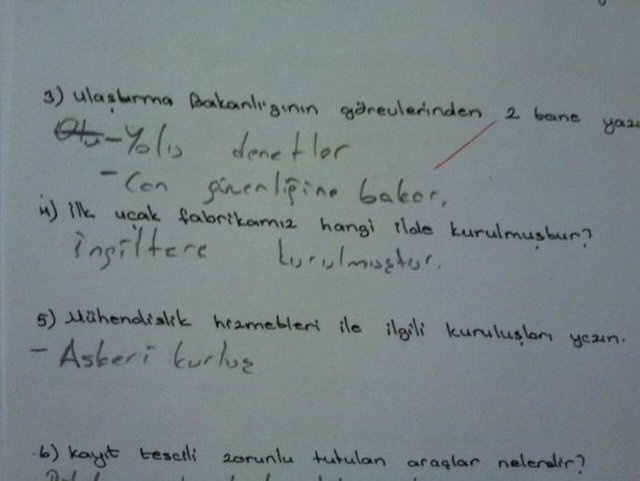 3) Ulaştırma Bakanlığının görevlerinden 2 tane yazı
Otu - Yolu denetler
- Can güvenliğine bakar.
4) İlk uçak fabrikamız hangi ilde kurulmuştur?
İngiltere kurulmuştur.
5) Mühendislik hizmetleri ile ilgili kuruluşları yazın.
- Askeri kurluş
6) Kayıt tescili zorunlu tutulan araçlar nelerdir?